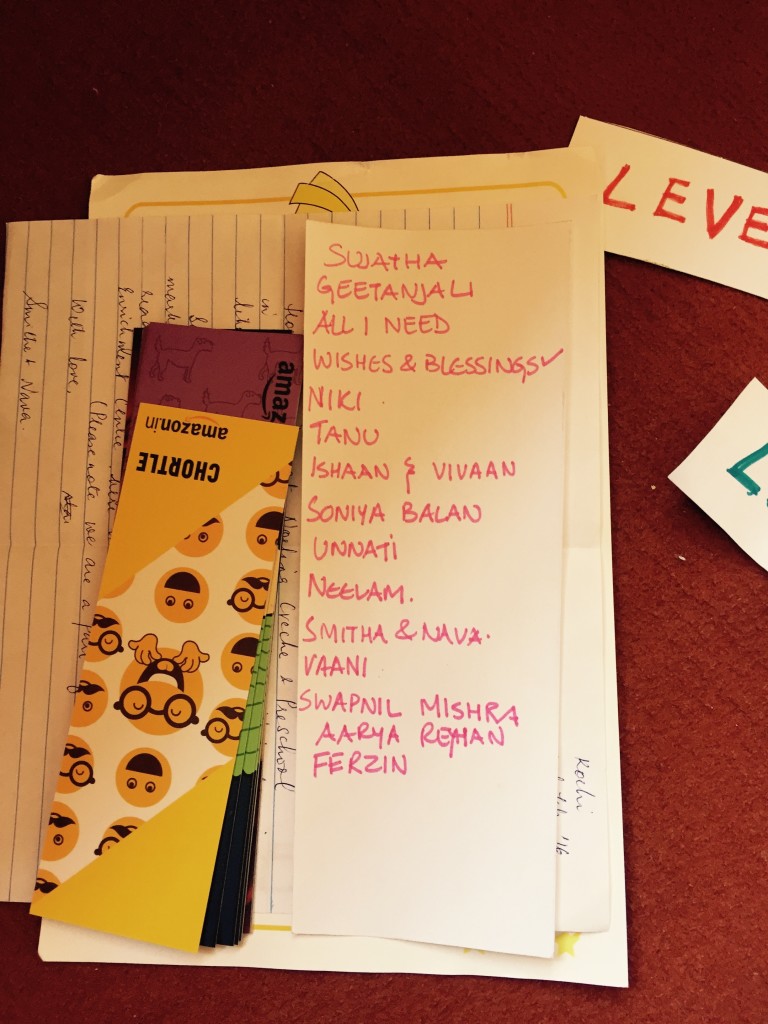 LEVE
SWATHA
GEETANJALI
ALL I NEED
WISHES & BLESSINGS✓
NIKI
TANU
ISHAAN & VIVAAN
SONIYA BALAN
UNNATI
NEELAM.
SMITHA & NAVA.
VAANI
SWAPNIL MISHRA
AARYA REHAN
FERZIN
amaz
amazon.in
CHORTLE
in
Enrichment Centre, here
(Please note we are a
With love,
Smitha & Nava.
Creche & Preschool
Kochi
'16